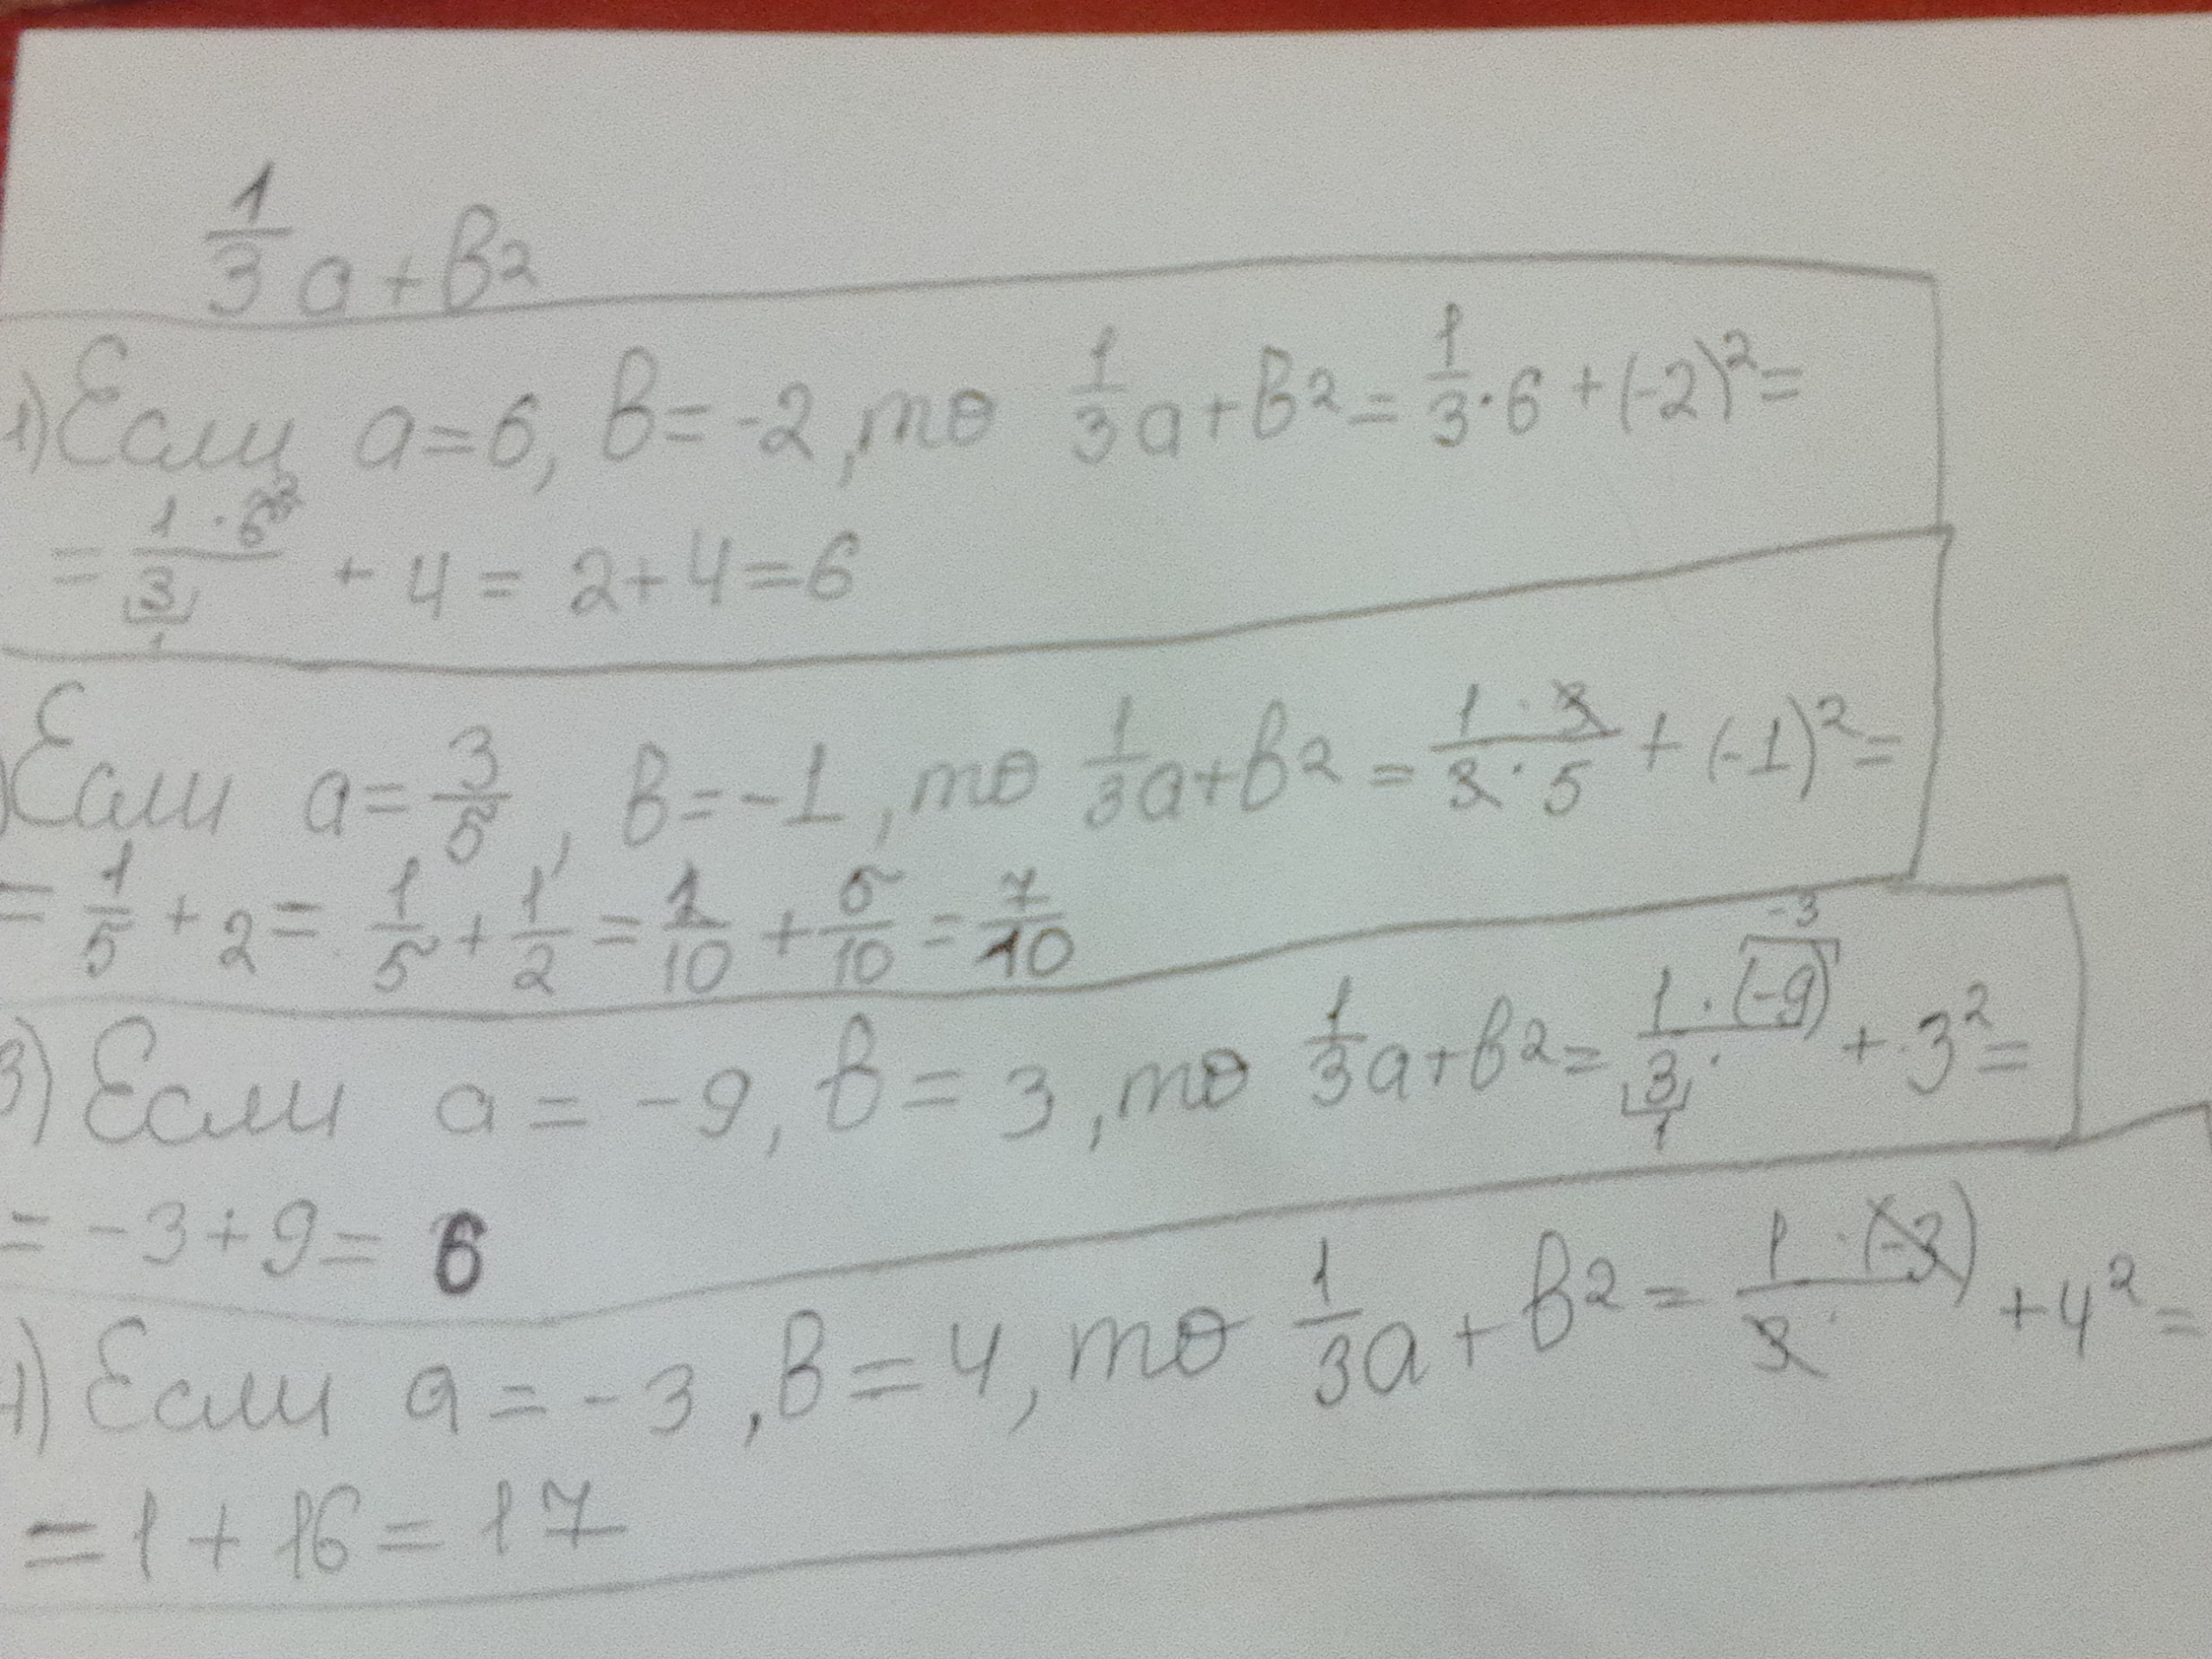 1/3 a + в²
1) Если a = 6, в = -2, то 1/3 a + в² = 1/3 · 6 + (-2)² =
= 1 · 6 2 / 3 1 + 4 = 2 + 4 = 6
) Если a = 3/5, в = -1, то 1/3 a + в² = 1 · 3 / 3 · 5 + (-1)² =
= 1/5 + 2 = 1/5 + 1/2 = 2/10 + 5/10 = 7/10
3) Если a = -9, в = 3, то 1/3 a + в² = 1 · (-9) -3 / 3 · 1 + 3² =
= -3 + 9 = 6
4) Если a = -3, в = 4, то 1/3 a + в² = 1 · (-3) / 3 · + 4² =
= 1 + 16 = 17